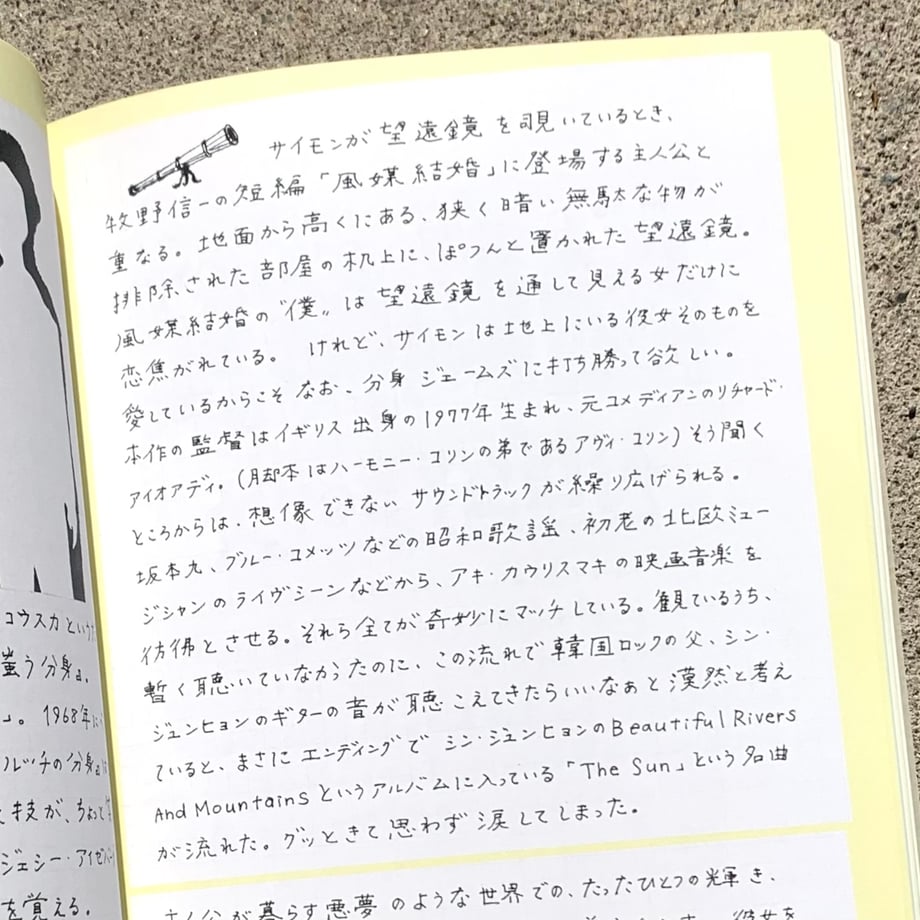 サイモンが望遠鏡を覗いているとき、
牧野信一の短編「風媒結婚」に登場する主人公と
重なる。地面から高くにある、狭く暗い無駄な物が
排除された部屋の机上に、ぽつんと置かれた望遠鏡。
風媒結婚の〝僕〟は望遠鏡を通して見える女だけに
恋焦がれている。けれど、サイモンは地上にいる彼女そのものを
愛しているからこそなお、分身ジェームズに打ち勝って欲しい。
本作の監督はイギリス出身の1977年生まれ、元コメディアンのリチャード・
アイオアディ。(脚本はハーモニー・コリンの弟であるアヴィ・コリン)そう聞く
ところからは、想像できないサウンドトラックが繰り広げられる。
坂本九、ブルー・コメッツなどの昭和歌謡、初老の北欧ミュー
ジシャンのライヴシーンなどから、アキ・カウリスマキの映画音楽を
彷彿とさせる。それら全てが奇妙にマッチしている。観ているうち、
暫く聴いていなかったのに、この流れで韓国ロックの父、シン・
ジュンヒョンのギターの音が聴こえてきたらいいなぁと漠然と考え
ていると、まさにエンディングでシン・ジュンヒョンのBeautiful Rivers
And Mountainsというアルバムに入っている「The Sun」という名曲
が流れた。グッときて思わず涙してしまった。
主人公が暮らす悪夢のような世界での、たったひとつの輝き、
彼女を
コウスカという
嗤う分身』。
』。1968年に
ルッチの分身』
技が、ちょっと
ジェシー・アイゼンバ
を覚える。